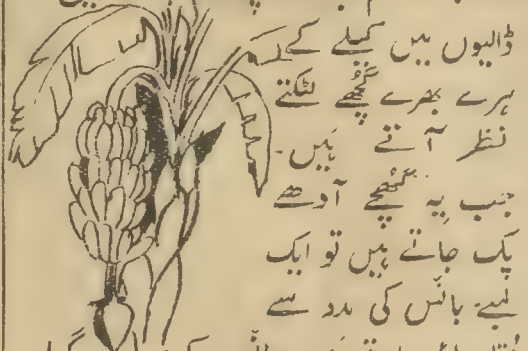 ڈالیوں میں کیلے کے
ہرے بھرے گچھے لٹکتے
نظر آتے ہیں۔
جب یہ گچھے آدھے
پک جاتے ہیں تو ایک
لمبے بانس کی مدد سے